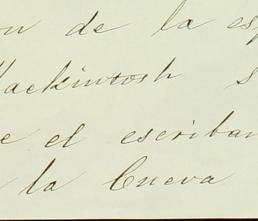 on de la esp
Mackintosh s
e el escriban
la Cueva